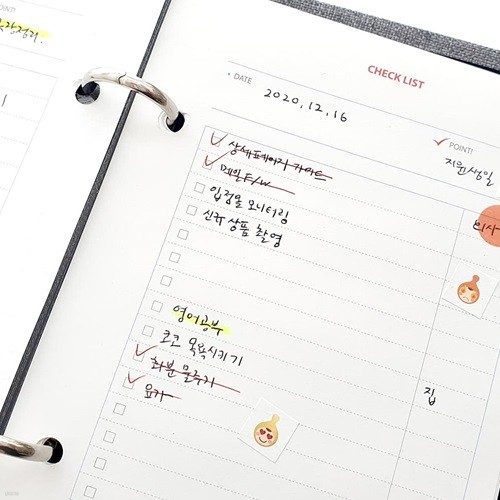 POINT!
정리.
CHECK LIST
DATE
2020.12.16
POINT!
지윤생일
상세페이지 가이드
메일 F/W
입점몰 모니터링
회사
신규 상품 촬영
영어공부
코코 목욕시키기
화분 물주기
집
요가